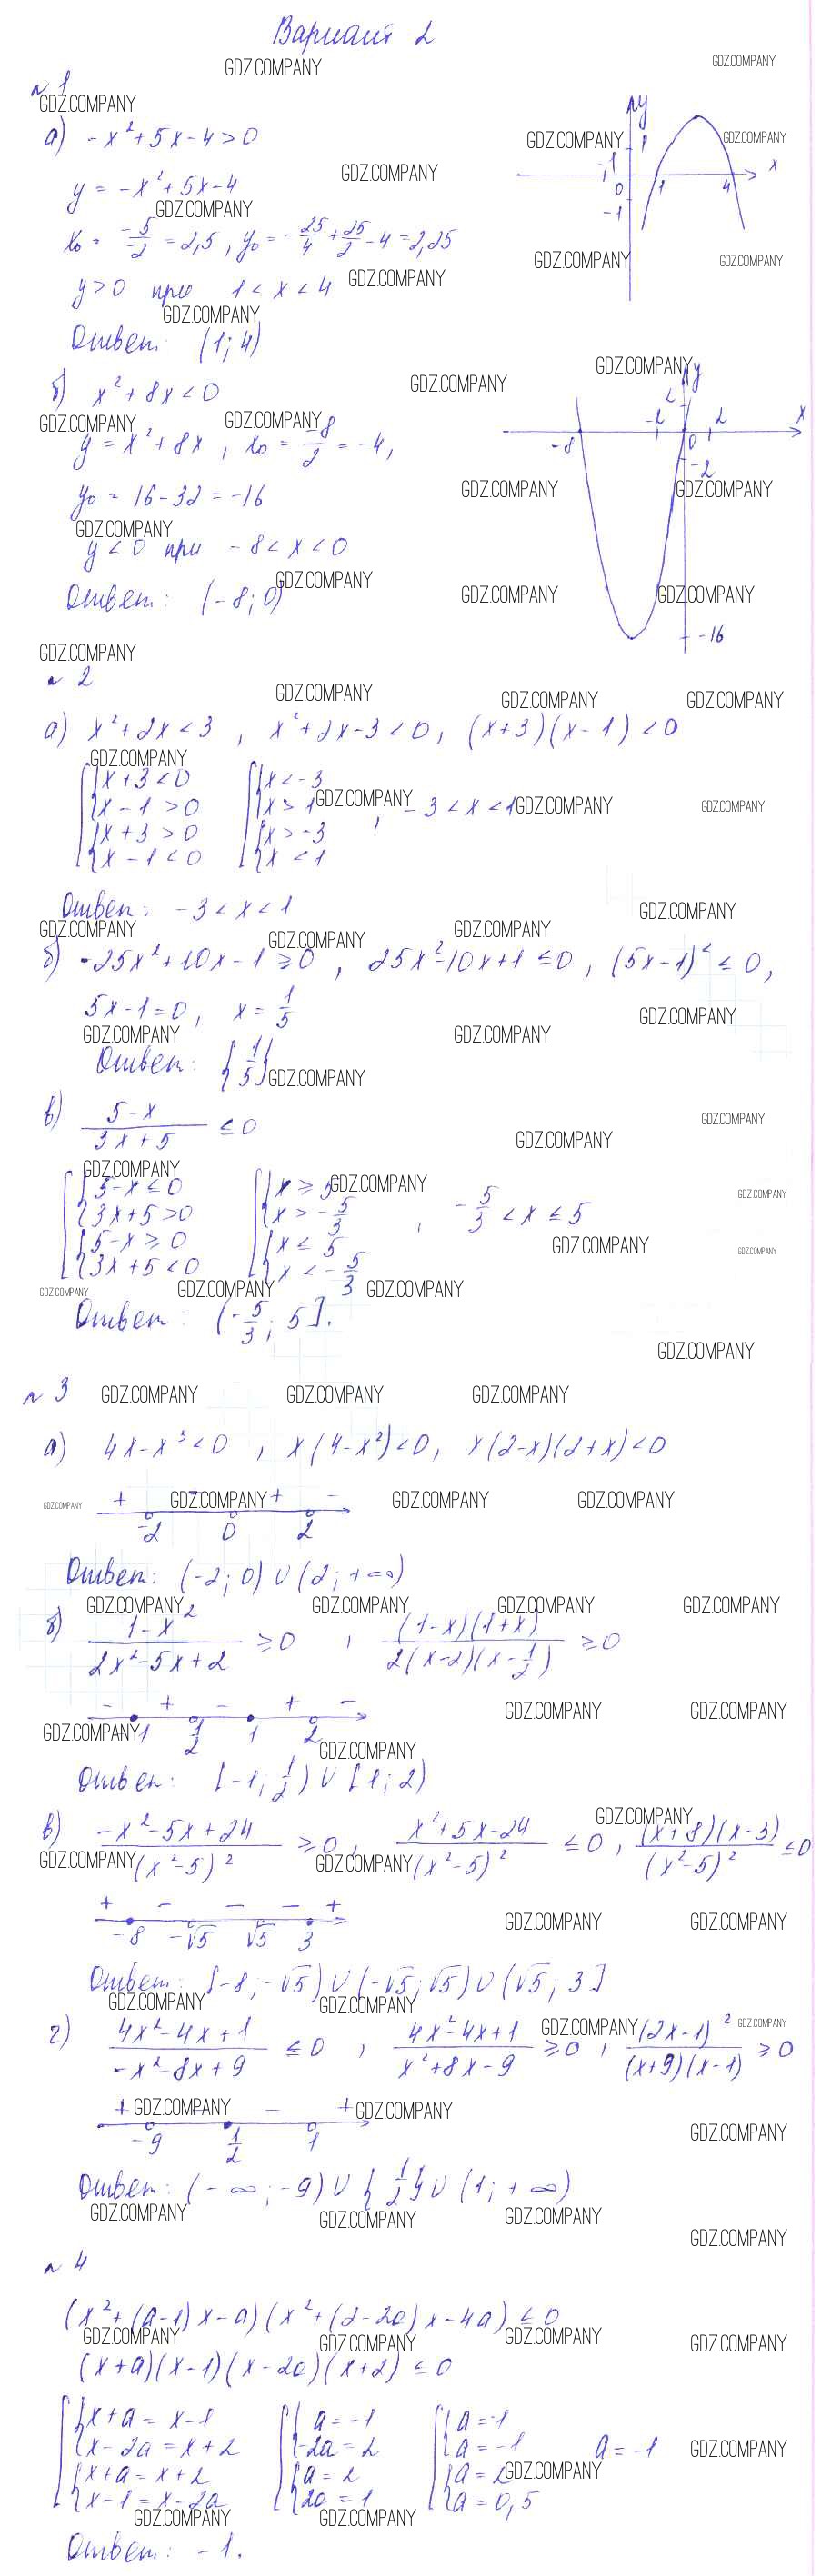 Вариант 2
№ 1
а) -x² + 5x - 4 > 0
y = -x² + 5x - 4
x₀ = -5/-2 = 2,5 , y₀ = -25/4 + 25/2 - 4 = 2,25
y > 0 при 1 < x < 4
Ответ: (1; 4)
y
1
-1 0 1 4 x
-1
б) x² + 8x < 0
y = x² + 8x , x₀ = -8/2 = -4,
y₀ = 16 - 32 = -16
y < 0 при -8 < x < 0
Ответ: (-8; 0)
y
2
-8 -2 0 2 x
-2
-16
№ 2
а) x² + 2x < 3 , x² + 2x - 3 < 0, (x+3)(x-1) < 0
[ { x + 3 < 0 [ { x < -3
{ x - 1 > 0 { x > 1 , -3 < x < 1
{ x + 3 > 0 { x > -3
{ x - 1 < 0 { x < 1
Ответ: -3 < x < 1
б) -25x² + 10x - 1 ≥ 0 , 25x² - 10x + 1 ≤ 0 , (5x-1)² ≤ 0,
5x - 1 = 0, x = 1/5
Ответ: {1/5}
в) (5-x)/(3x+5) ≤ 0
[ { 5-x ≤ 0 [ { x ≥ 5
{ 3x+5 > 0 { x > -5/3 , -5/3 < x ≤ 5
{ 5-x ≥ 0 { x ≤ 5
{ 3x+5 < 0 { x < -5/3
Ответ: (-5/3; 5].
№ 3
а) 4x - x³ < 0 , x(4-x²) < 0, x(2-x)(2+x) < 0
+ + -
-2 0 2
Ответ: (-2; 0) ∪ (2; +∞)
б) (1-x²)/(2x²-5x+2) ≥ 0 , ((1-x)(1+x))/(2(x-2)(x-1/2)) ≥ 0
- + - + -
-1 1/2 1 2
Ответ: [-1; 1/2) ∪ [1; 2)
в) (-x²-5x+24)/(x²-5)² ≥ 0, (x²+5x-24)/(x²-5)² ≤ 0 , ((x+8)(x-3))/(x²-5)² ≤ 0
+ - - - +
-8 -√5 √5 3
Ответ: [-8; -√5) ∪ (-√5; √5) ∪ (√5; 3]
г) (4x²-4x+1)/(-x²-8x+9) ≤ 0 , (4x²-4x+1)/(x²+8x-9) ≥ 0 , (2x-1)²/((x+9)(x-1)) ≥ 0
+ - - +
-9 1/2 1
Ответ: (-∞; -9) ∪ {1/2} ∪ (1; +∞)
№ 4
(x² + (a-1)x - a)(x² + (2-2a)x - 4a) ≤ 0
(x+a)(x-1)(x-2a)(x+2) ≤ 0
[ { x+a = x-1 [ { a = -1 [ { a = -1
{ x-2a = x+2 { -2a = 2 { a = -1 a = -1
{ x+a = x+2 { a = 2 { a = 2
{ x-1 = x-2a { 2a = 1 { a = 0,5
Ответ: -1.
GDZ.COMPANY